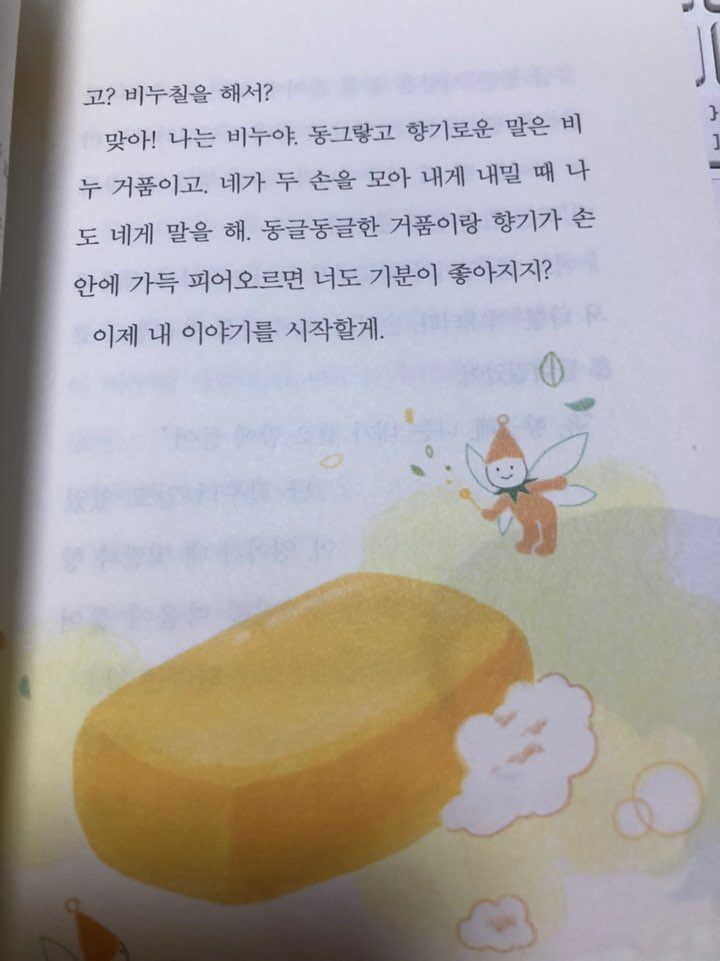 고? 비누칠을 해서?
맞아! 나는 비누야. 동그랗고 향기로운 말은 비
누 거품이고. 네가 두 손을 모아 내게 내밀 때 나
도 네게 말을 해. 동글동글한 거품이랑 향기가 손
안에 가득 피어오르면 너도 기분이 좋아지지?
이제 내 이야기를 시작할게.